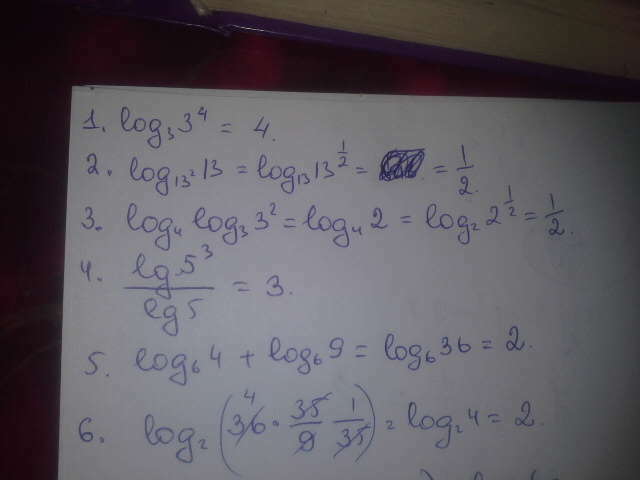 1. log₃ 3⁴ = 4.
2. log₁₃² 13 = log₁₃ 13^(1/2) = = 1/2.
3. log₄ log₃ 3² = log₄ 2 = log₂ 2^(1/2) = 1/2.
4. lg 5³ / lg 5 = 3.
5. log₆ 4 + log₆ 9 = log₆ 36 = 2.
6. log₂ (36 4 · 35/9 1/35) = log₂ 4 = 2.